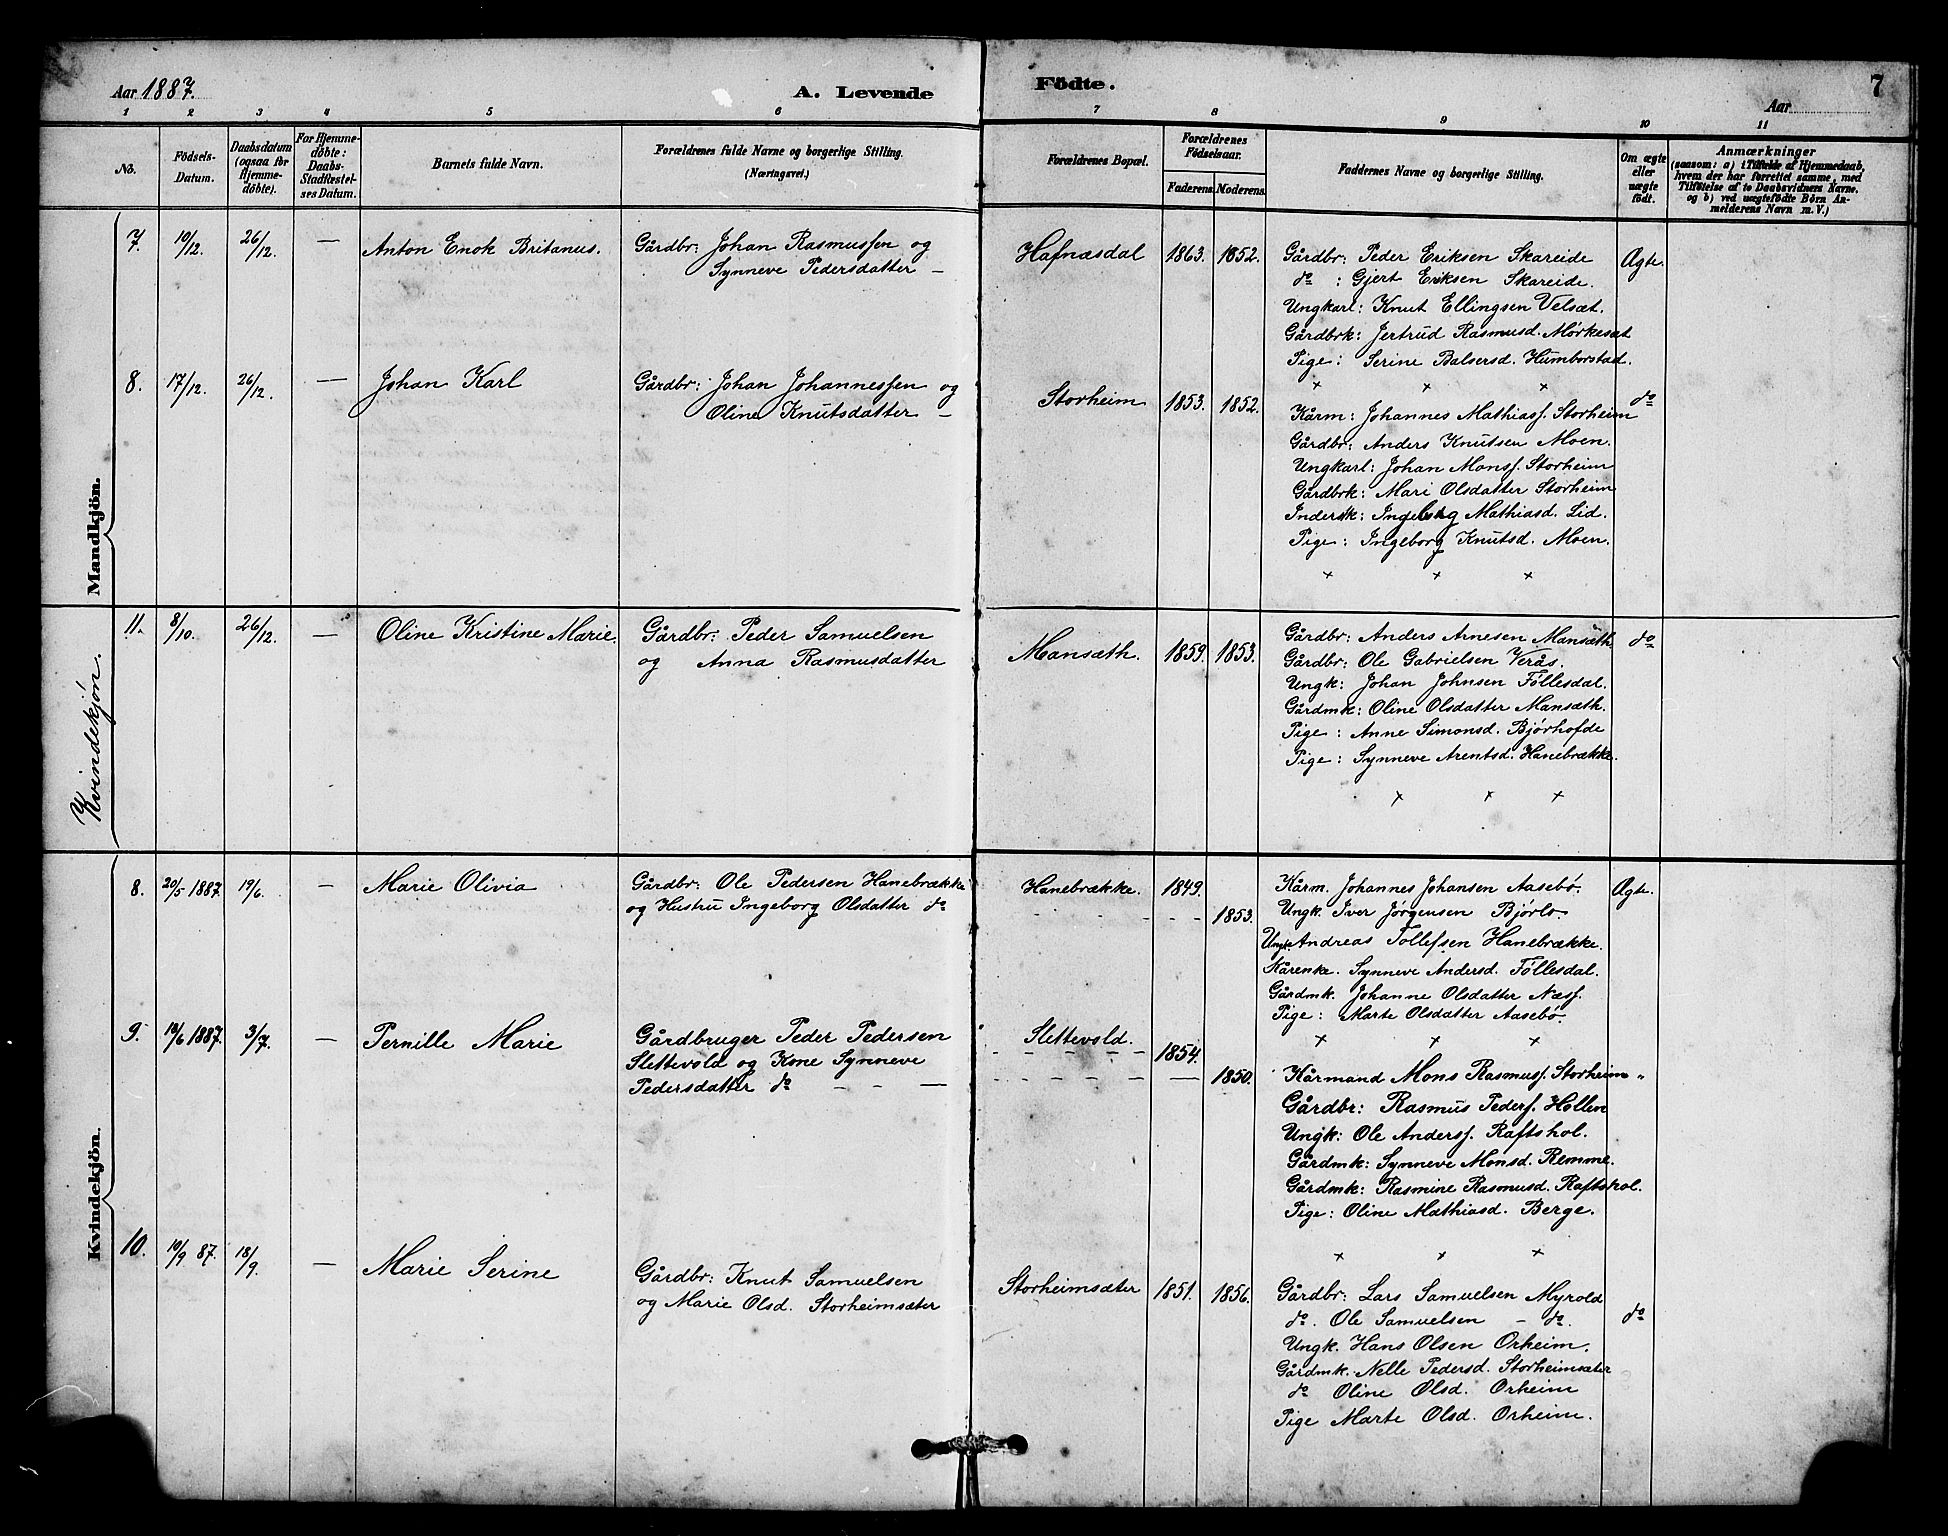 Aar 1887.
A. Levende Födte.
7
Aar
1 2 3 4 5 6 7 8 9 10 11
No.
Födsels-Datum.
Daabsdatum (ogsaa för Hjemme-döbte).
For Hjemme-döbte: Daabs-Stadfæstel-ses Datum.
Barnets fulde Navn.
Forældrenes fulde Navne og borgerlige Stilling.
(Næringsvei.)
Forældrenes Bopæl.
Forældrenes Födselsaar.
Faderens. Moderens.
Faddernes Navne og borgerlige Stilling.
Om ægte eller uægte födt.
Anmærkninger
(saasom: a) i Tilfælde af Hjemmedaab,
hvem der har forrettet samme, med
Tilföielse af to Daabsvidners Navne.
og b) ved uægtefödte Börn An-
melderens Navn m. V.)
Mandkjön.
7. 10/12. 26/12. — Anton Enok Britanus. Gårdbr: Johan Rasmussen og
Synneve Pedersdatter —
Hafnæsdal 1863. 1852. Gårdbr: Peder Eriksen Skareide Ægte.
do : Gjert Eriksen Skareide.
Ungkarl: Knut Ellingsen Velsæt.
Gårdbrk: Jertrud Rasmusd. Mørkesæt
Pige: Serine Balsersd. Humborstad.
× × ×
8. 17/12. 26/12. — Johan Karl Gårdbr: Johan Johannessen og
Oline Knutsdatter —
Storheim 1853. 1852. do
Kårm: Johannes Mathiass. Storheim
Gårdbr: Anders Knutsen Moen.
Ungkarl: Johan Monss. Storheim
Gårdbrk: Mari Olsdatter Storheim
Indersk: Ingeborg Mathiasd. Lid.
Pige: Ingeborg Knutsd. Moen.
× × ×
Kvindekjøn.
11. 8/10. 26/12. — Oline Kristine Marie. Gårdbr: Peder Samuelsen
og Anna Rasmusdatter
Mansæth. 1859. 1853. Gårdbr: Anders Arnesen Mansæth. do
Gårdbr: Ole Gabrielsen Verås.
Ungk: Johan Johnsen Föllesdal.
Gårdmk: Oline Olsdatter Mansæth.
Pige: Anne Simonsd. Bjørhofde
Pige: Synneve Arentsd. Hanebrække.
× × ×
Kvindekjön.
8. 20/5 1887. 19/6. — Marie Olivia Gårdbr: Ole Pedersen Hanebrække
og Hustru Ingeborg Olsdatter do
Hanebrække. 1849. 1853. Kårm. Johannes Johansen Aasebø. Ægte.
Ungk. Iver Jørgensen Bjørlo.
Ungk. Andreas Tollefsen Hanebrække.
Kårenke. Synneve Andersd. Föllesdal.
Gårdmk. Johanne Olsdatter Næss.
Pige: Marte Olsdatter Aasebø.
× × ×
9. 19/6 1887. 3/7. — Pernille Marie Gårdbruger Peder Pedersen
Slettevold og Kone Synneve
Pedersdatter do — — —
Slettevold. 1854. 1850.
Kårmand Mons Rasmuss. Storheim "
Gårdbr: Rasmus Peders. Hollen
Ungk: Ole Anderss. Raftshol.
Gårdmk: Synneve Monsd. Remme.
Gårdmk: Rasmine Rasmusd. Raftshol.
Pige: Oline Mathiasd. Berge.
× × ×
10. 10/9 87. 18/9. — Marie Serine Gårdbr: Knut Samuelsen
og Marie Olsd. Storheimsæter
Storheimsæter 1851. 1856. Gårdbr: Lars Samuelsen Myrold
do. Ole Samuelsen — do. do
Ungk. Hans Olsen Orheim.
Gårdmk. Nelle Pedersd. Storheimsæter
do Oline Olsd. Orheim
Pige Marte Olsd. Orheim.